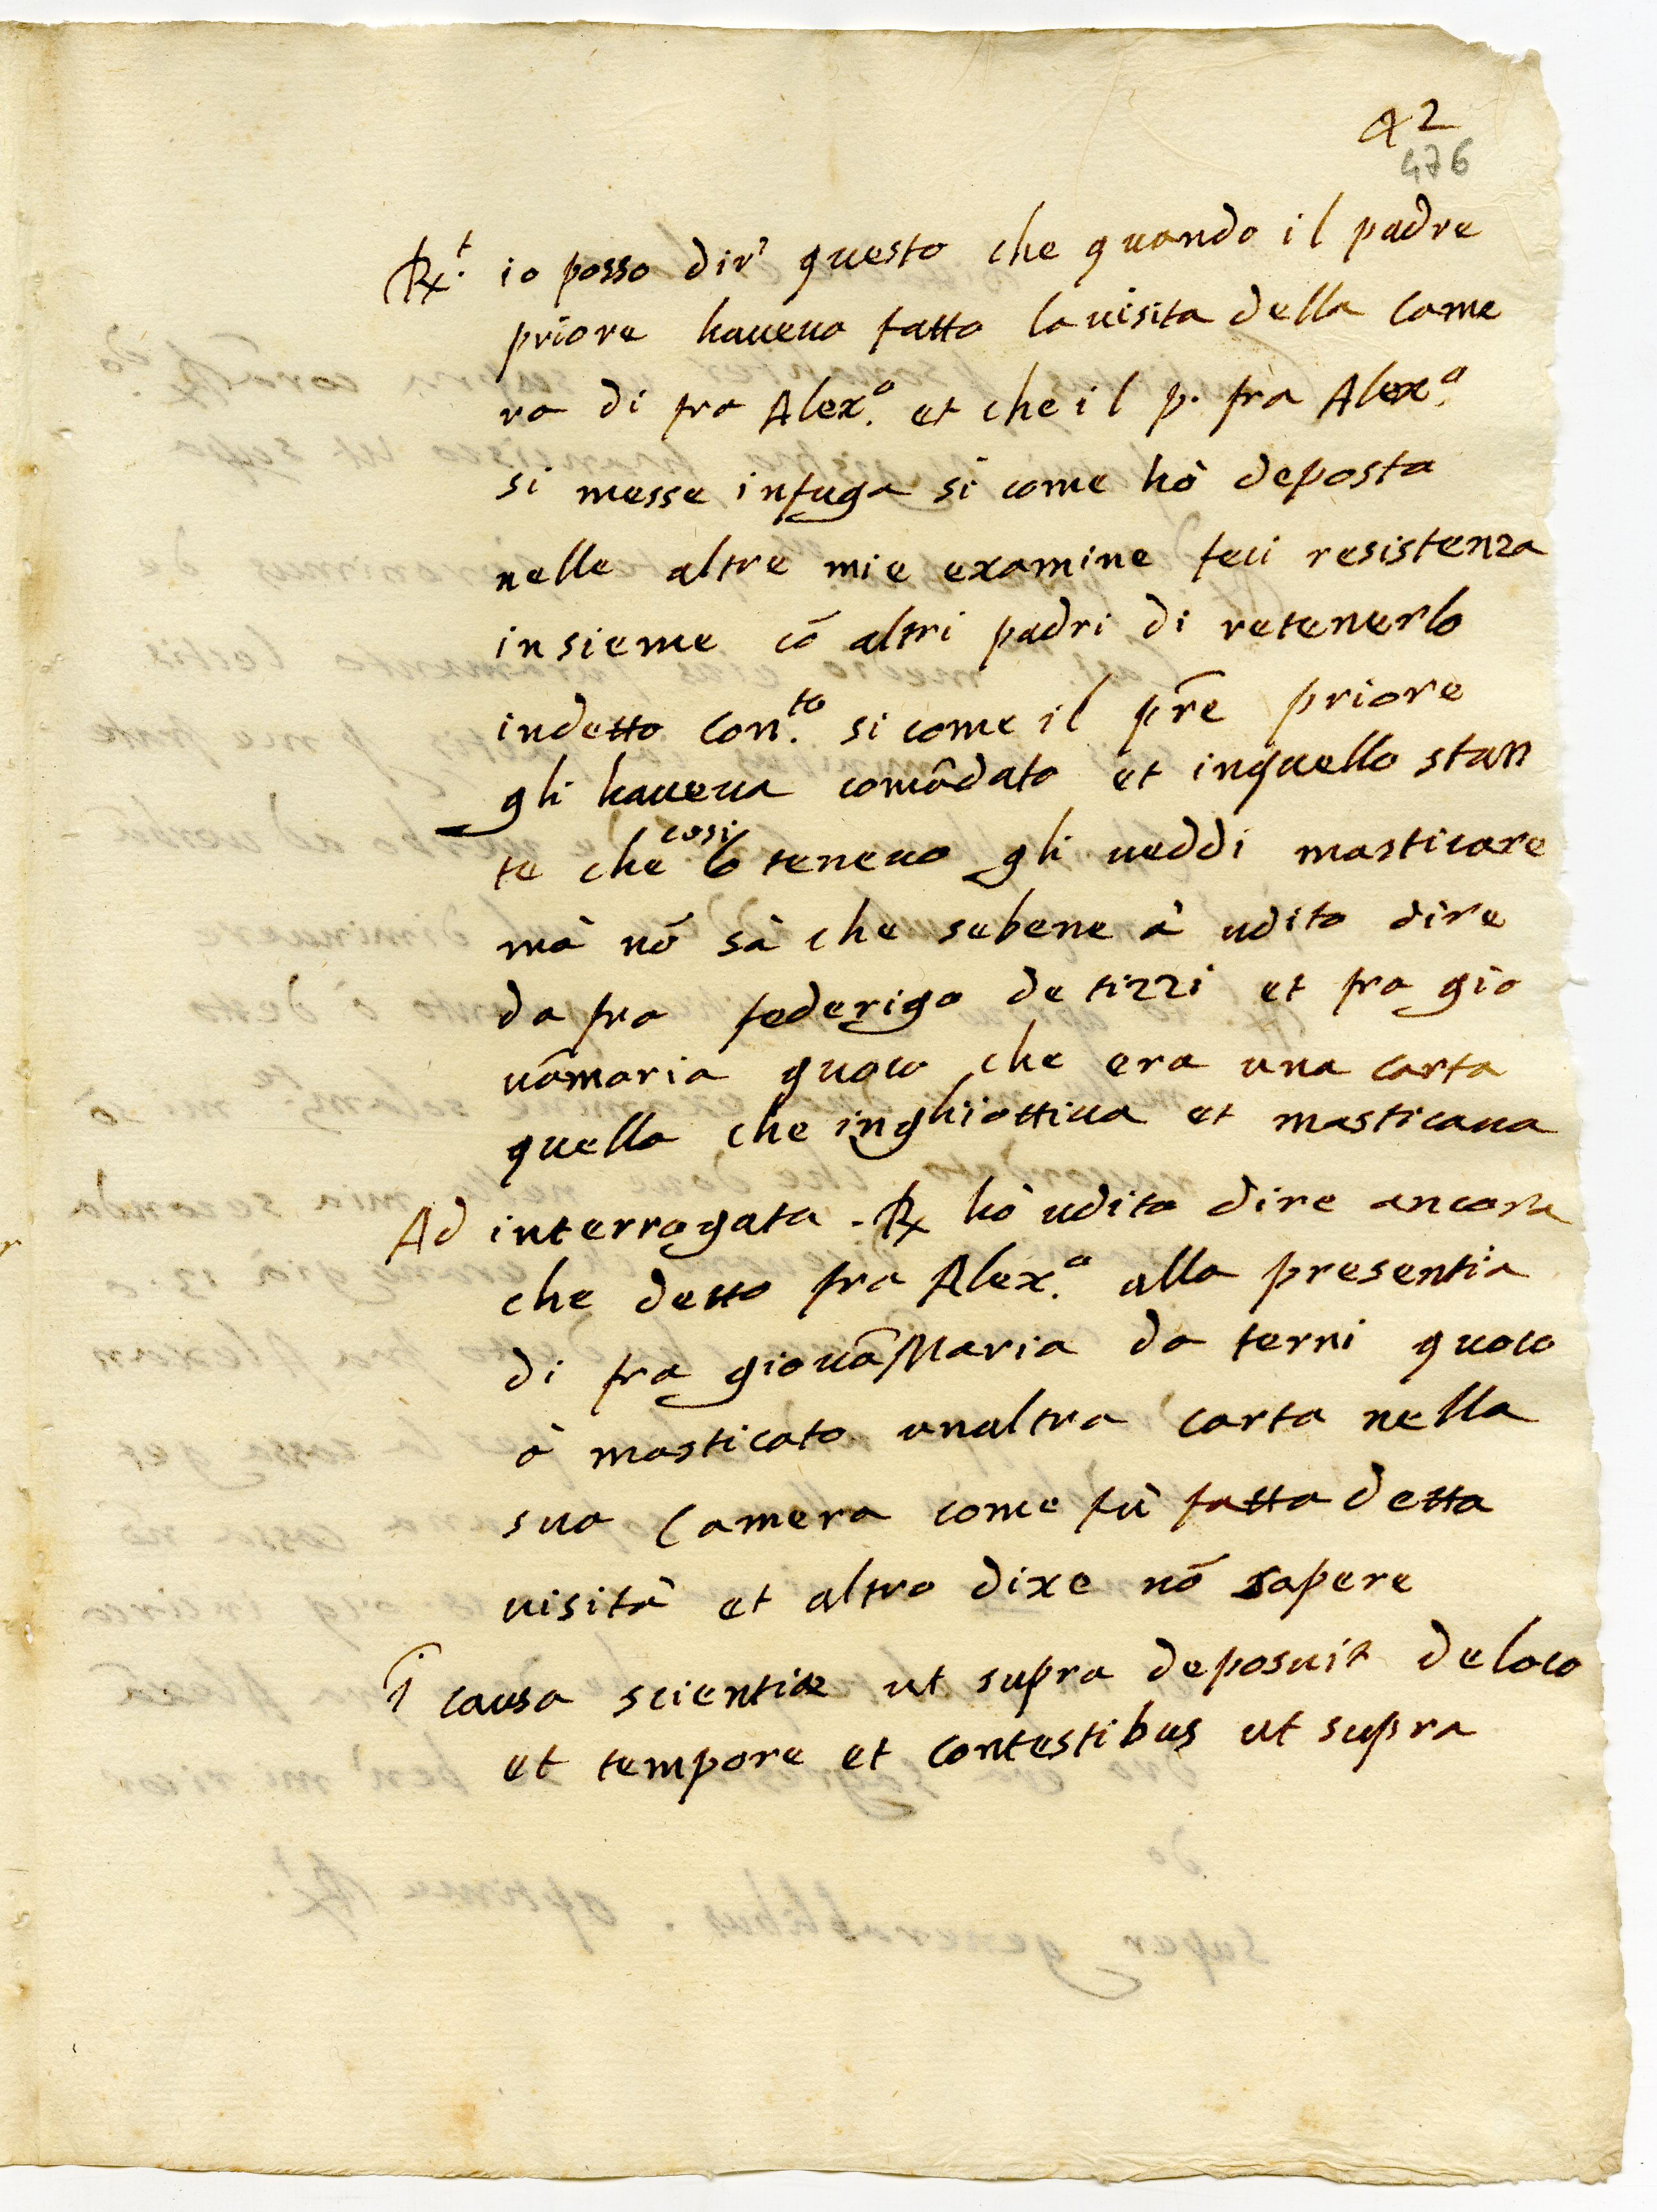 42
476
R.t io posso dir' questo che quando il padre
priore haveva fatto la visita della came
ra di fra Alex.o et che il p. fra Alex.o
si messe infuga si come hò deposto
nelle altre mie examine feci resistenza
insieme cō altri padri di retenerlo
indetto con.to si come il pr̄e priore
gli haveva comādato et inquello stan
te che cosi lo tenevo gli veddi masticare
mà nō sà che sebene à udito dire
da fra federigo de tizzi et fra gio
vāmaria quoco che era una carta
quella che inghiottiva et masticava
Ad interrogata . R hò udito dire ancora
che detto fra Alex.o alla presentia
di fra giovāMaria da terni quoco
à masticato unaltra carta nella
sua Camera come fù fatta detta
visità et altro dixe nō sapere
ī causa scientiæ ut supra deposuit de loco
et tempore et contestibus ut supra